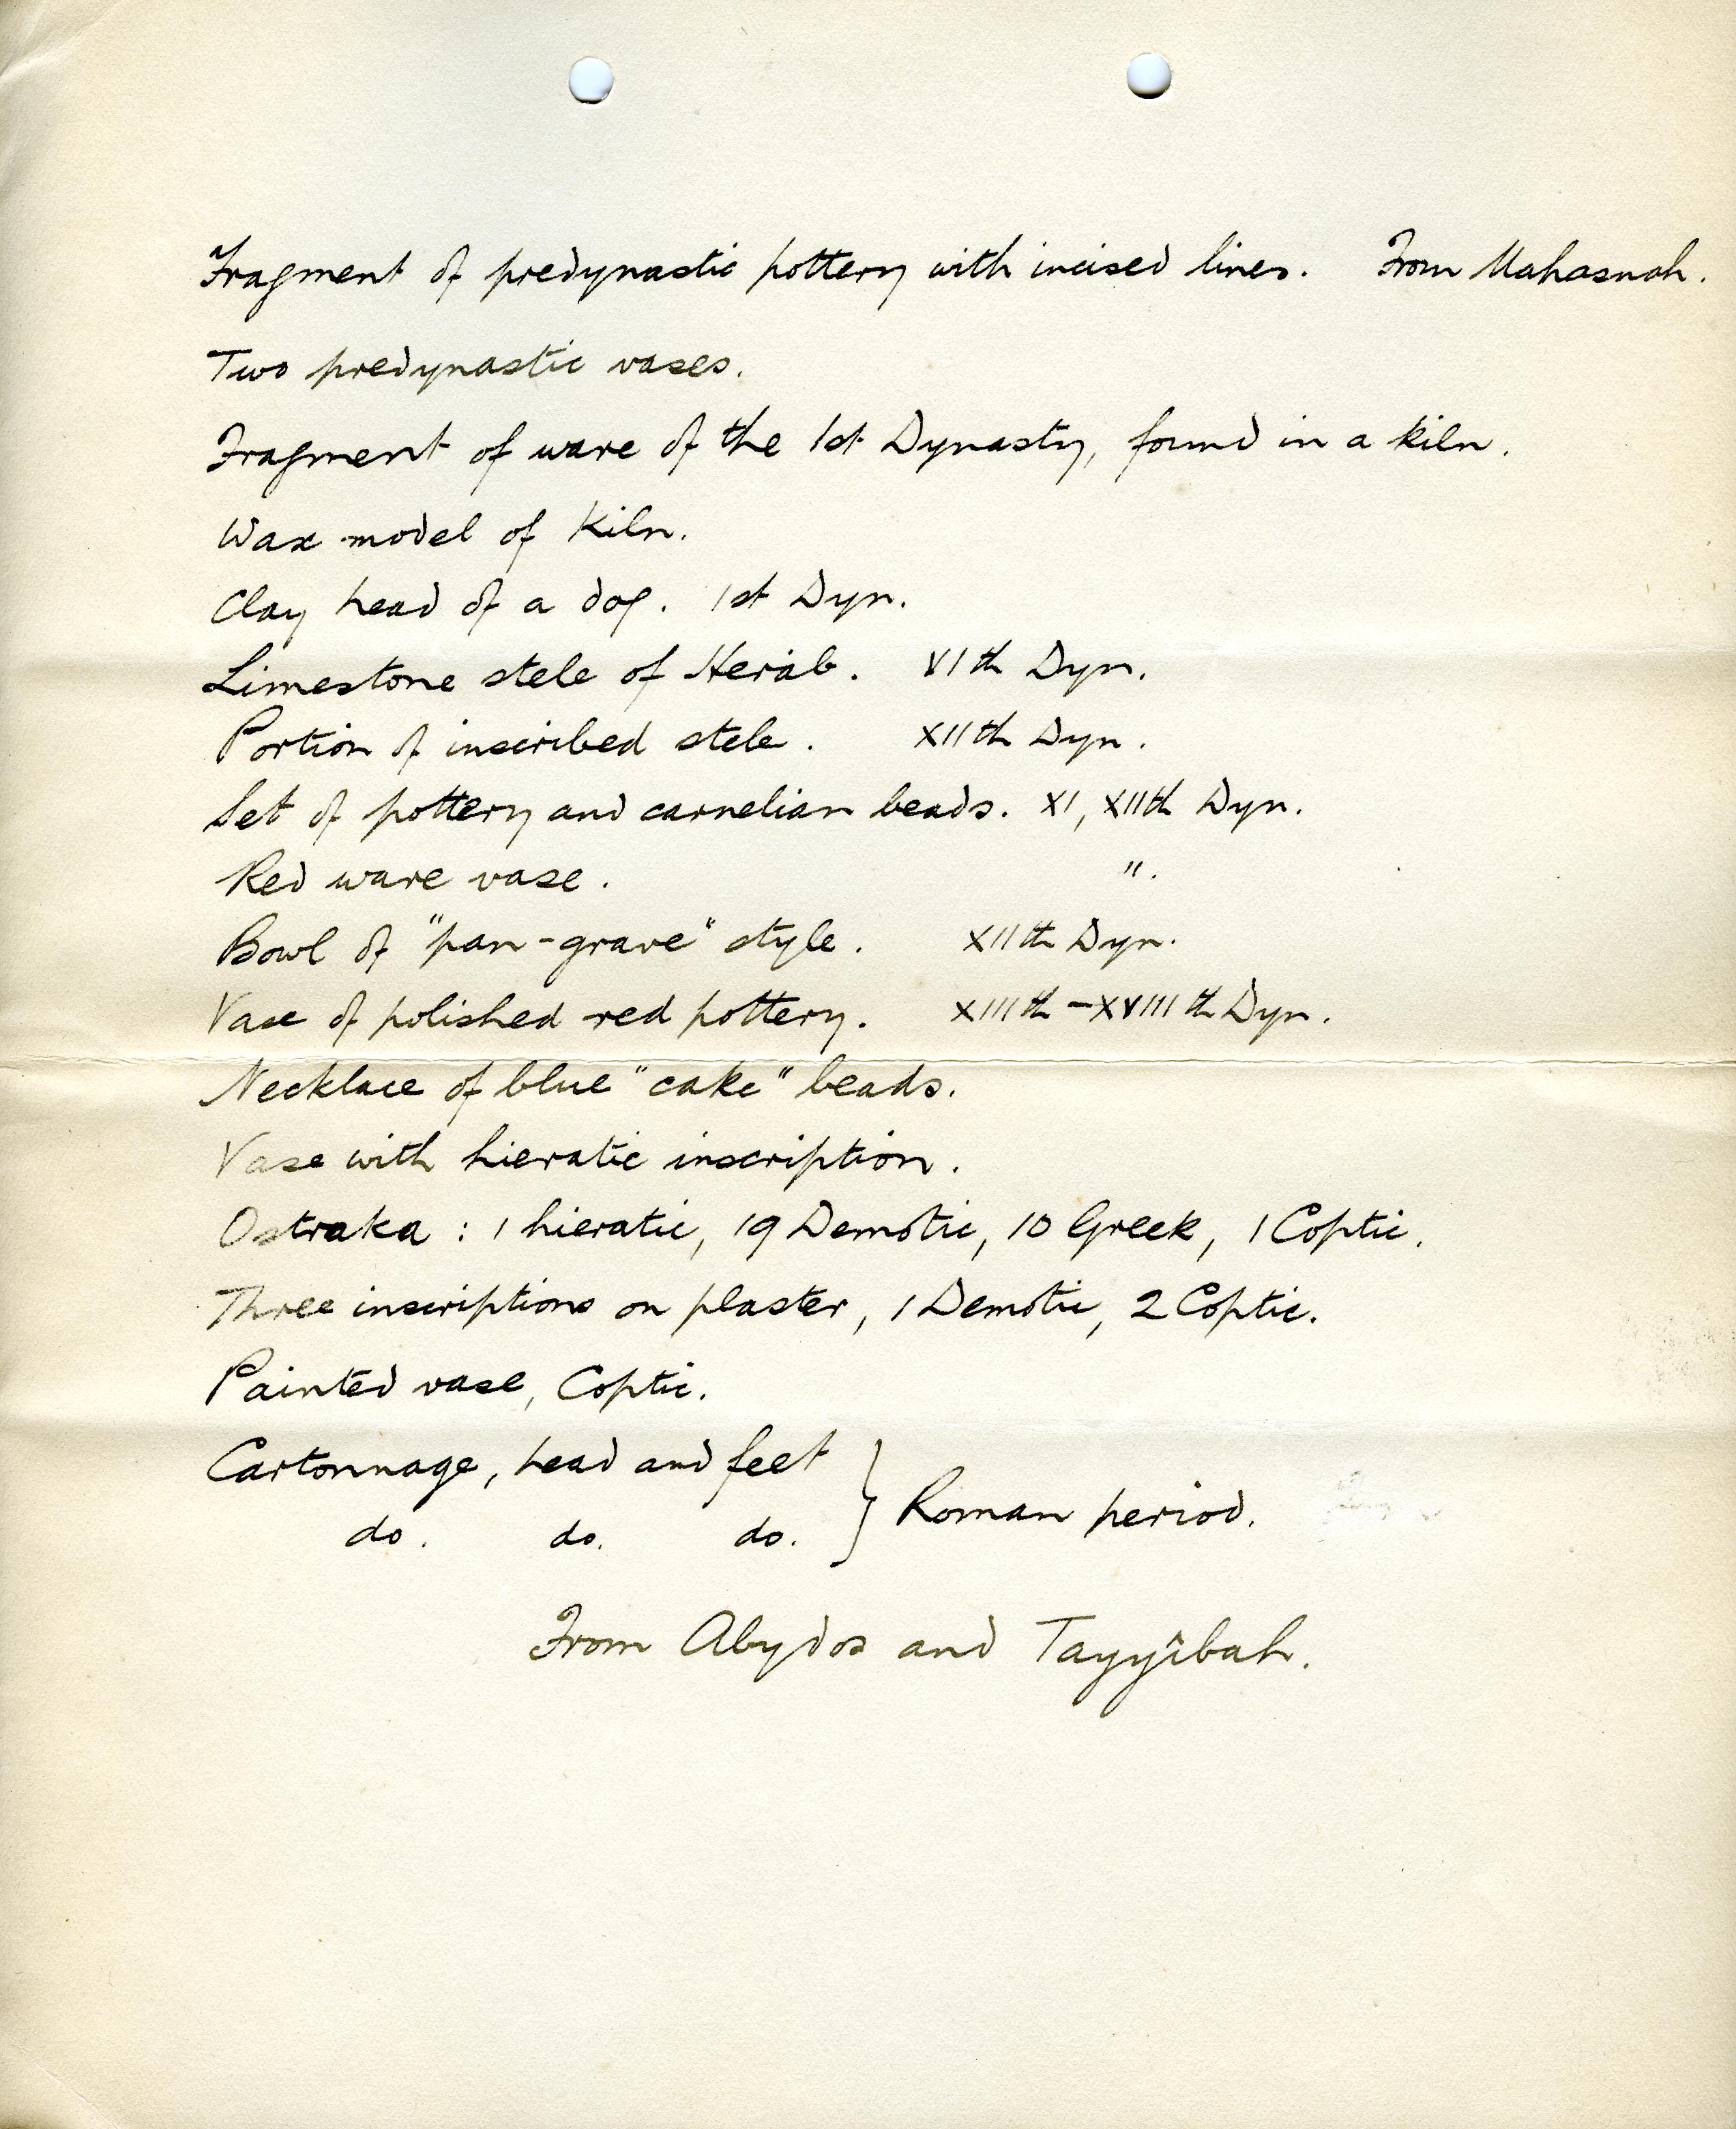 Fragment of predynastic pottery with incised lines. From Mahasnah.
Two predynastic vases.
Fragment of ware of the 1st Dynasty, found in a kiln.
Wax model of Kiln.
Clay head of a dog. 1st Dyn.
Limestone stele of Heráb. VIth Dyn.
Portion of inscribed stele. XIIth Dyn.
Set of pottery and carnelian beads. XI, XIIth Dyn.
Red ware vase. ".
Bowl of "pan-grave" style. XIIth Dyn.
Vase of polished red pottery. XIIIth - XVIIIth Dyn.
Necklace of blue "cake" beads.
Vase with hieratic inscription.
Ostraka : 1 hieratic, 19 Demotic, 10 Greek, 1 Coptic.
Three inscriptions on plaster, 1 Demotic, 2 Coptic.
Painted vase, Coptic.
Cartonnage, head and feet
do. do. do. } Roman period.
From Abydos and Tayyîbah.